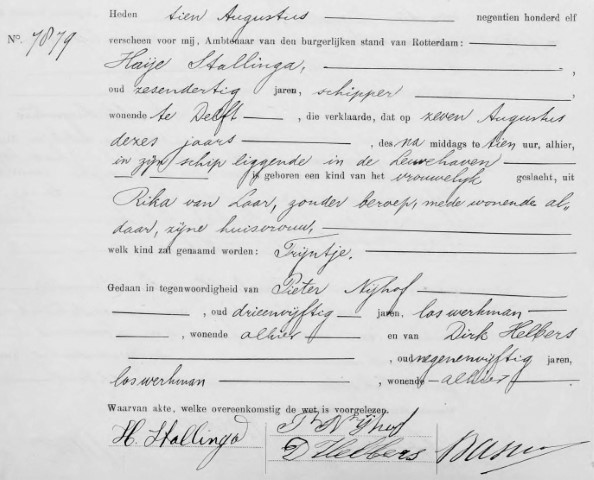 Heden tien Augustus negentien honderd elf
No. 7879
verscheen voor mij, Ambtenaar van den burgerlijken stand van Rotterdam:
Haije Stallinga,
oud zesendertig jaren, schipper,
wonende te Delft, die verklaarde, dat op zeven Augustus
dezes jaars, des na middags te tien uur, alhier,
in zijn schip liggende in de Leuvehaven
is geboren een kind van het vrouwelijk geslacht, uit
Rika van Laar, zonder beroep, mede wonende al„
daar, zijne huisvrouw,
welk kind zal genaamd worden: Trijntje.
Gedaan in tegenwoordigheid van Pieter Nijhof
, oud drieenvijftig jaren, los werkman
, wonende alhier en van Dirk Helbers
, oud negenenvijftig jaren,
los werkman, wonende alhier
Waarvan akte, welke overeenkomstig de wet is voorgelezen.
H. Stallinga
Nijhof
D Helbers